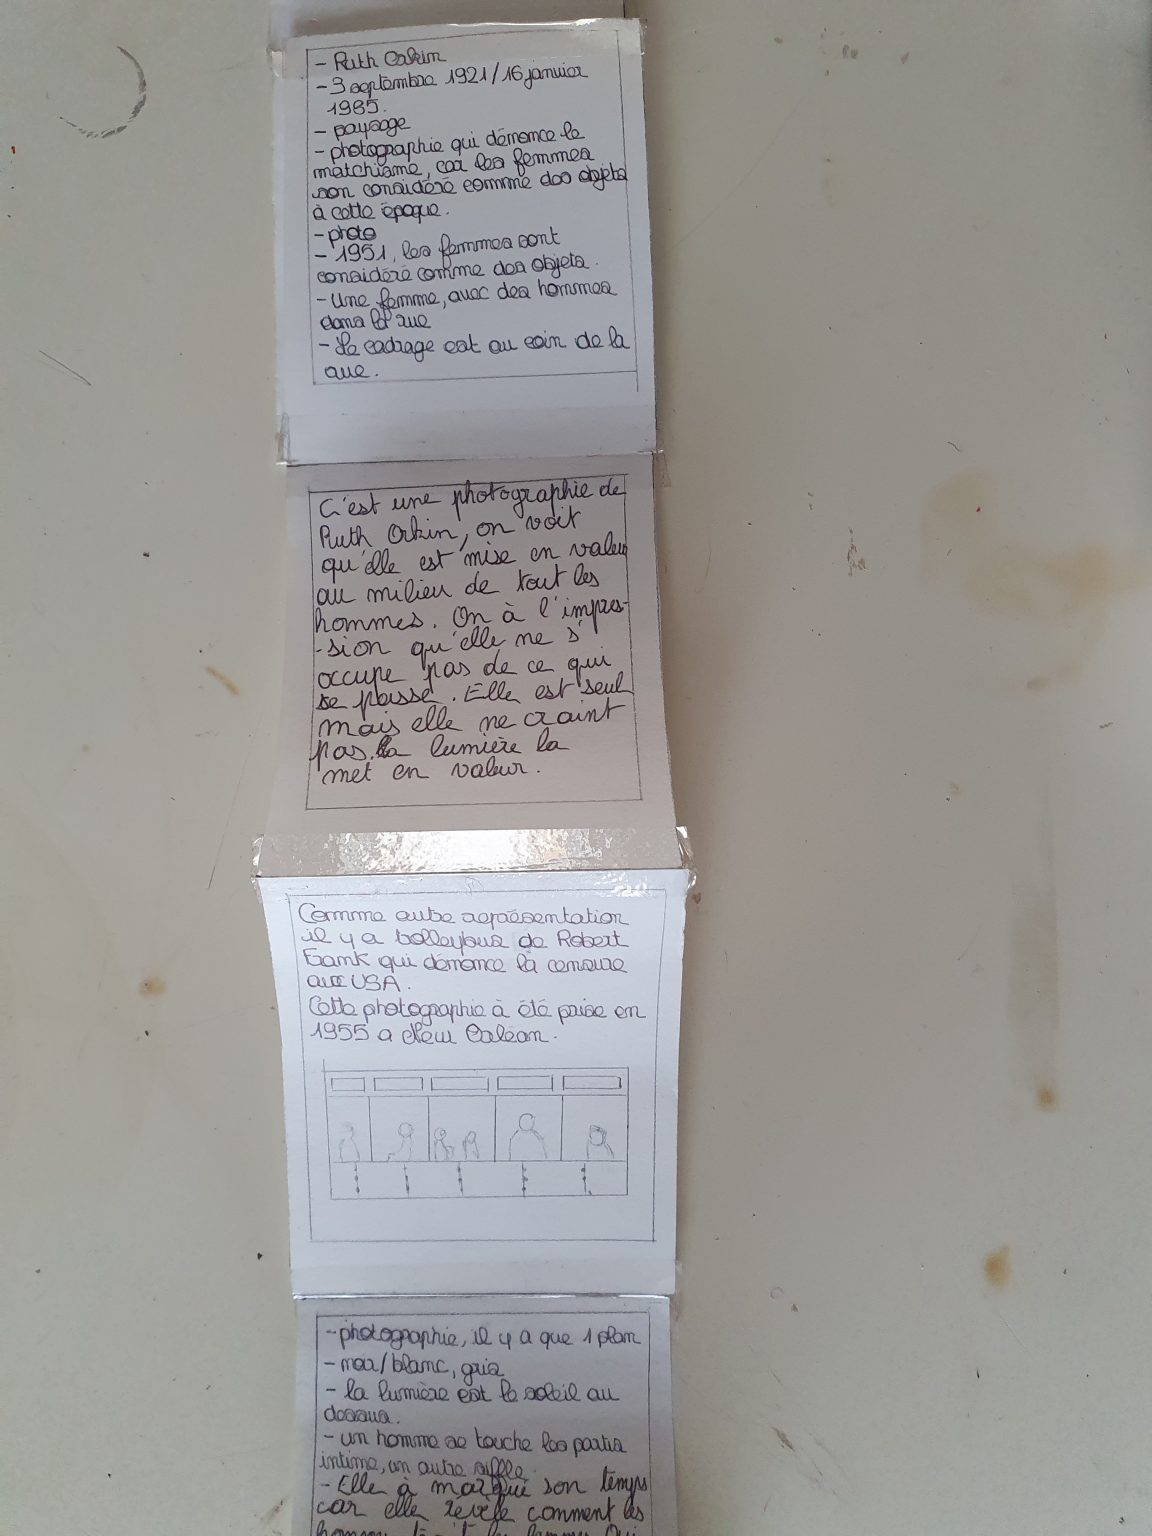 - Ruth Orkin
- 3 septembre 1921/16 janvier
1985.
- paysage
- photographie qui dénonce le
matchisme, car les femmes
son considéré comme des objets
à cette époque.
- photo
- 1951, les femmes sont
considéré comme des objets.
- Une femme, avec des hommes
dans la rue
- Le cadrage est au coin de la
rue.
C'est une photographie de
Ruth Orkin, on voit
qu'elle est mise en valeur
au milieu de tout les
hommes. On à l'impres-
-sion qu'elle ne s'
occupe pas de ce qui
se passe. Elle est seul
mais elle ne craint
pas. la lumière la
met en valeur.
Comme autre représentation
il y a trolleybus de Robert
Frank qui dénonce la censure
aux USA.
Cette photographie à été prise en
1955 a New Orléan.
- photographie, il y a que 1 plan
- noir/blanc, gris
- la lumière est le soleil au
dessus.
- un homme se touche les partis
intime, un autre siffle.
- Elle à marqué son temps
car elle revèle comment les